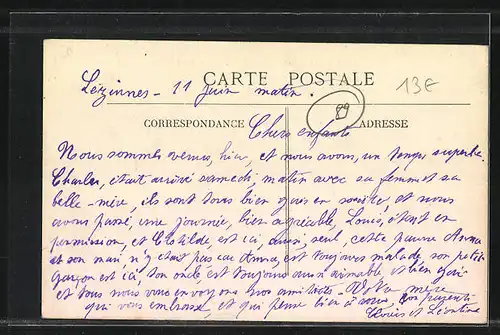 CARTE POSTALE
Lézinnes - 11 juin matin.
13€
89
CORRESPONDANCE
ADRESSE
Chers enfants
Nous sommes venus, hier, et nous avons, un temps superbe.
Charles, était arrivé samedi matin avec sa femme et sa
belle-mère, ils sont tous bien gais en société, et nous
avons passé, une journée, bien agréable, Louis, étant en
permission, et Clotilde, est ici, aussi, seul, cette pauvre Anna
et son mari n'y était pas car Anna, est toujours malade, son petit
garçon est ici, ton oncle, est toujours aussi aimable, et bien gai
et tous nous vous envoyons nos amitiés - Vota mère
qui vous embrasse, et qui pense bien à vous,
Louis et Léontine